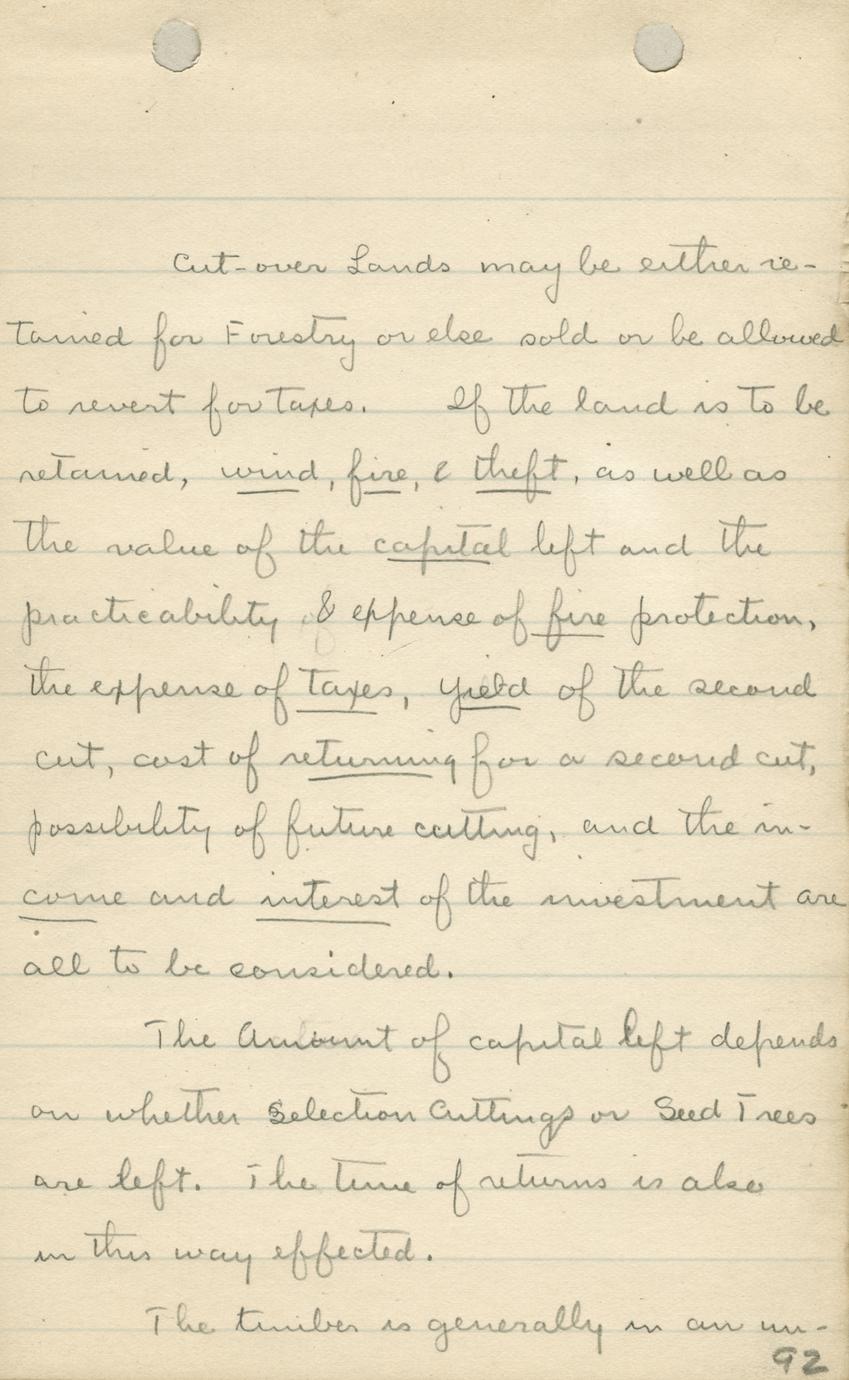 Cut-over Lands may be either re-
tained for Forestry or else sold or be allowed
to revert for taxes. If the land is to be
retained, wind, fire, & theft, as well as
the value of the capital left and the
practicability & expense of fire protection,
the expense of taxes, yield of the second
cut, cost of returning for a second cut,
possibility of future cutting, and the in-
come and interest of the investment are
all to be considered.
The Amount of capital left depends
on whether Selection Cuttings or Seed Trees
are left. The time of returns is also
in this way effected.
The timber is generally in an un-
92